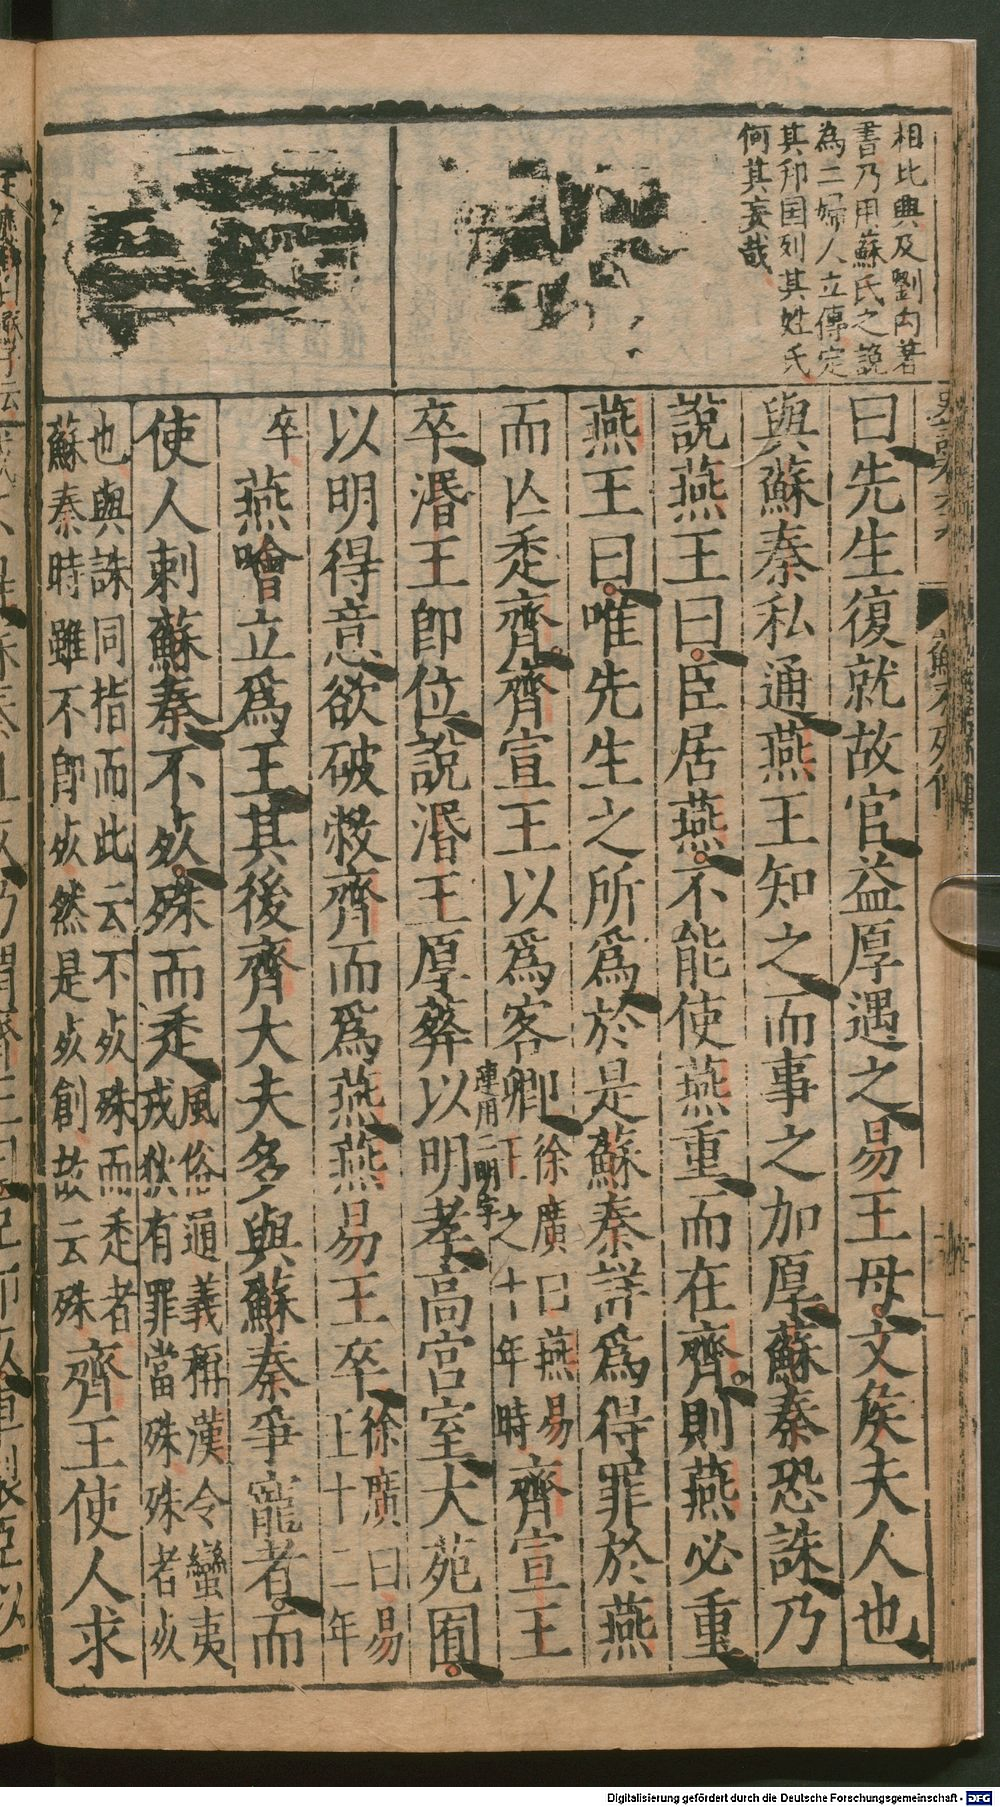 相比與及劉向著
書乃用蘇氏之說
為二婦人立傳定
其邦国列其姓氏
何其妄哉
曰先生復就故官益厚遇之易王母文矦夫人也
與蘇秦私通燕王知之而事之加厚蘇秦恐誅乃
說燕王曰臣居燕不能使燕重而在齊則燕必重
燕王曰唯先生之所爲於是蘇秦詳爲得罪於燕
而亾走齊齊宣王以爲客卿
徐廣曰燕易
王之十年時
齊宣王
卒湣王即位說湣王厚葬以明孝高宮室大苑囿
連用二明字
以明得意欲破敝齊而爲燕燕易王卒
徐廣曰易
王十二年
卒
燕噲立爲王其後齊大夫多與蘇秦爭寵者而
使人刺蘇秦不死殊而走
風俗通義稱漢令蠻夷
戎狄有罪當殊殊者死
也與誅同指而此云不死殊而走者
蘇秦時雖不即死然是死創故云殊
齊王使人求
蘇秦列傳
Digitalisierung gefördert durch die Deutsche Forschungsgemeinschaft - DFG